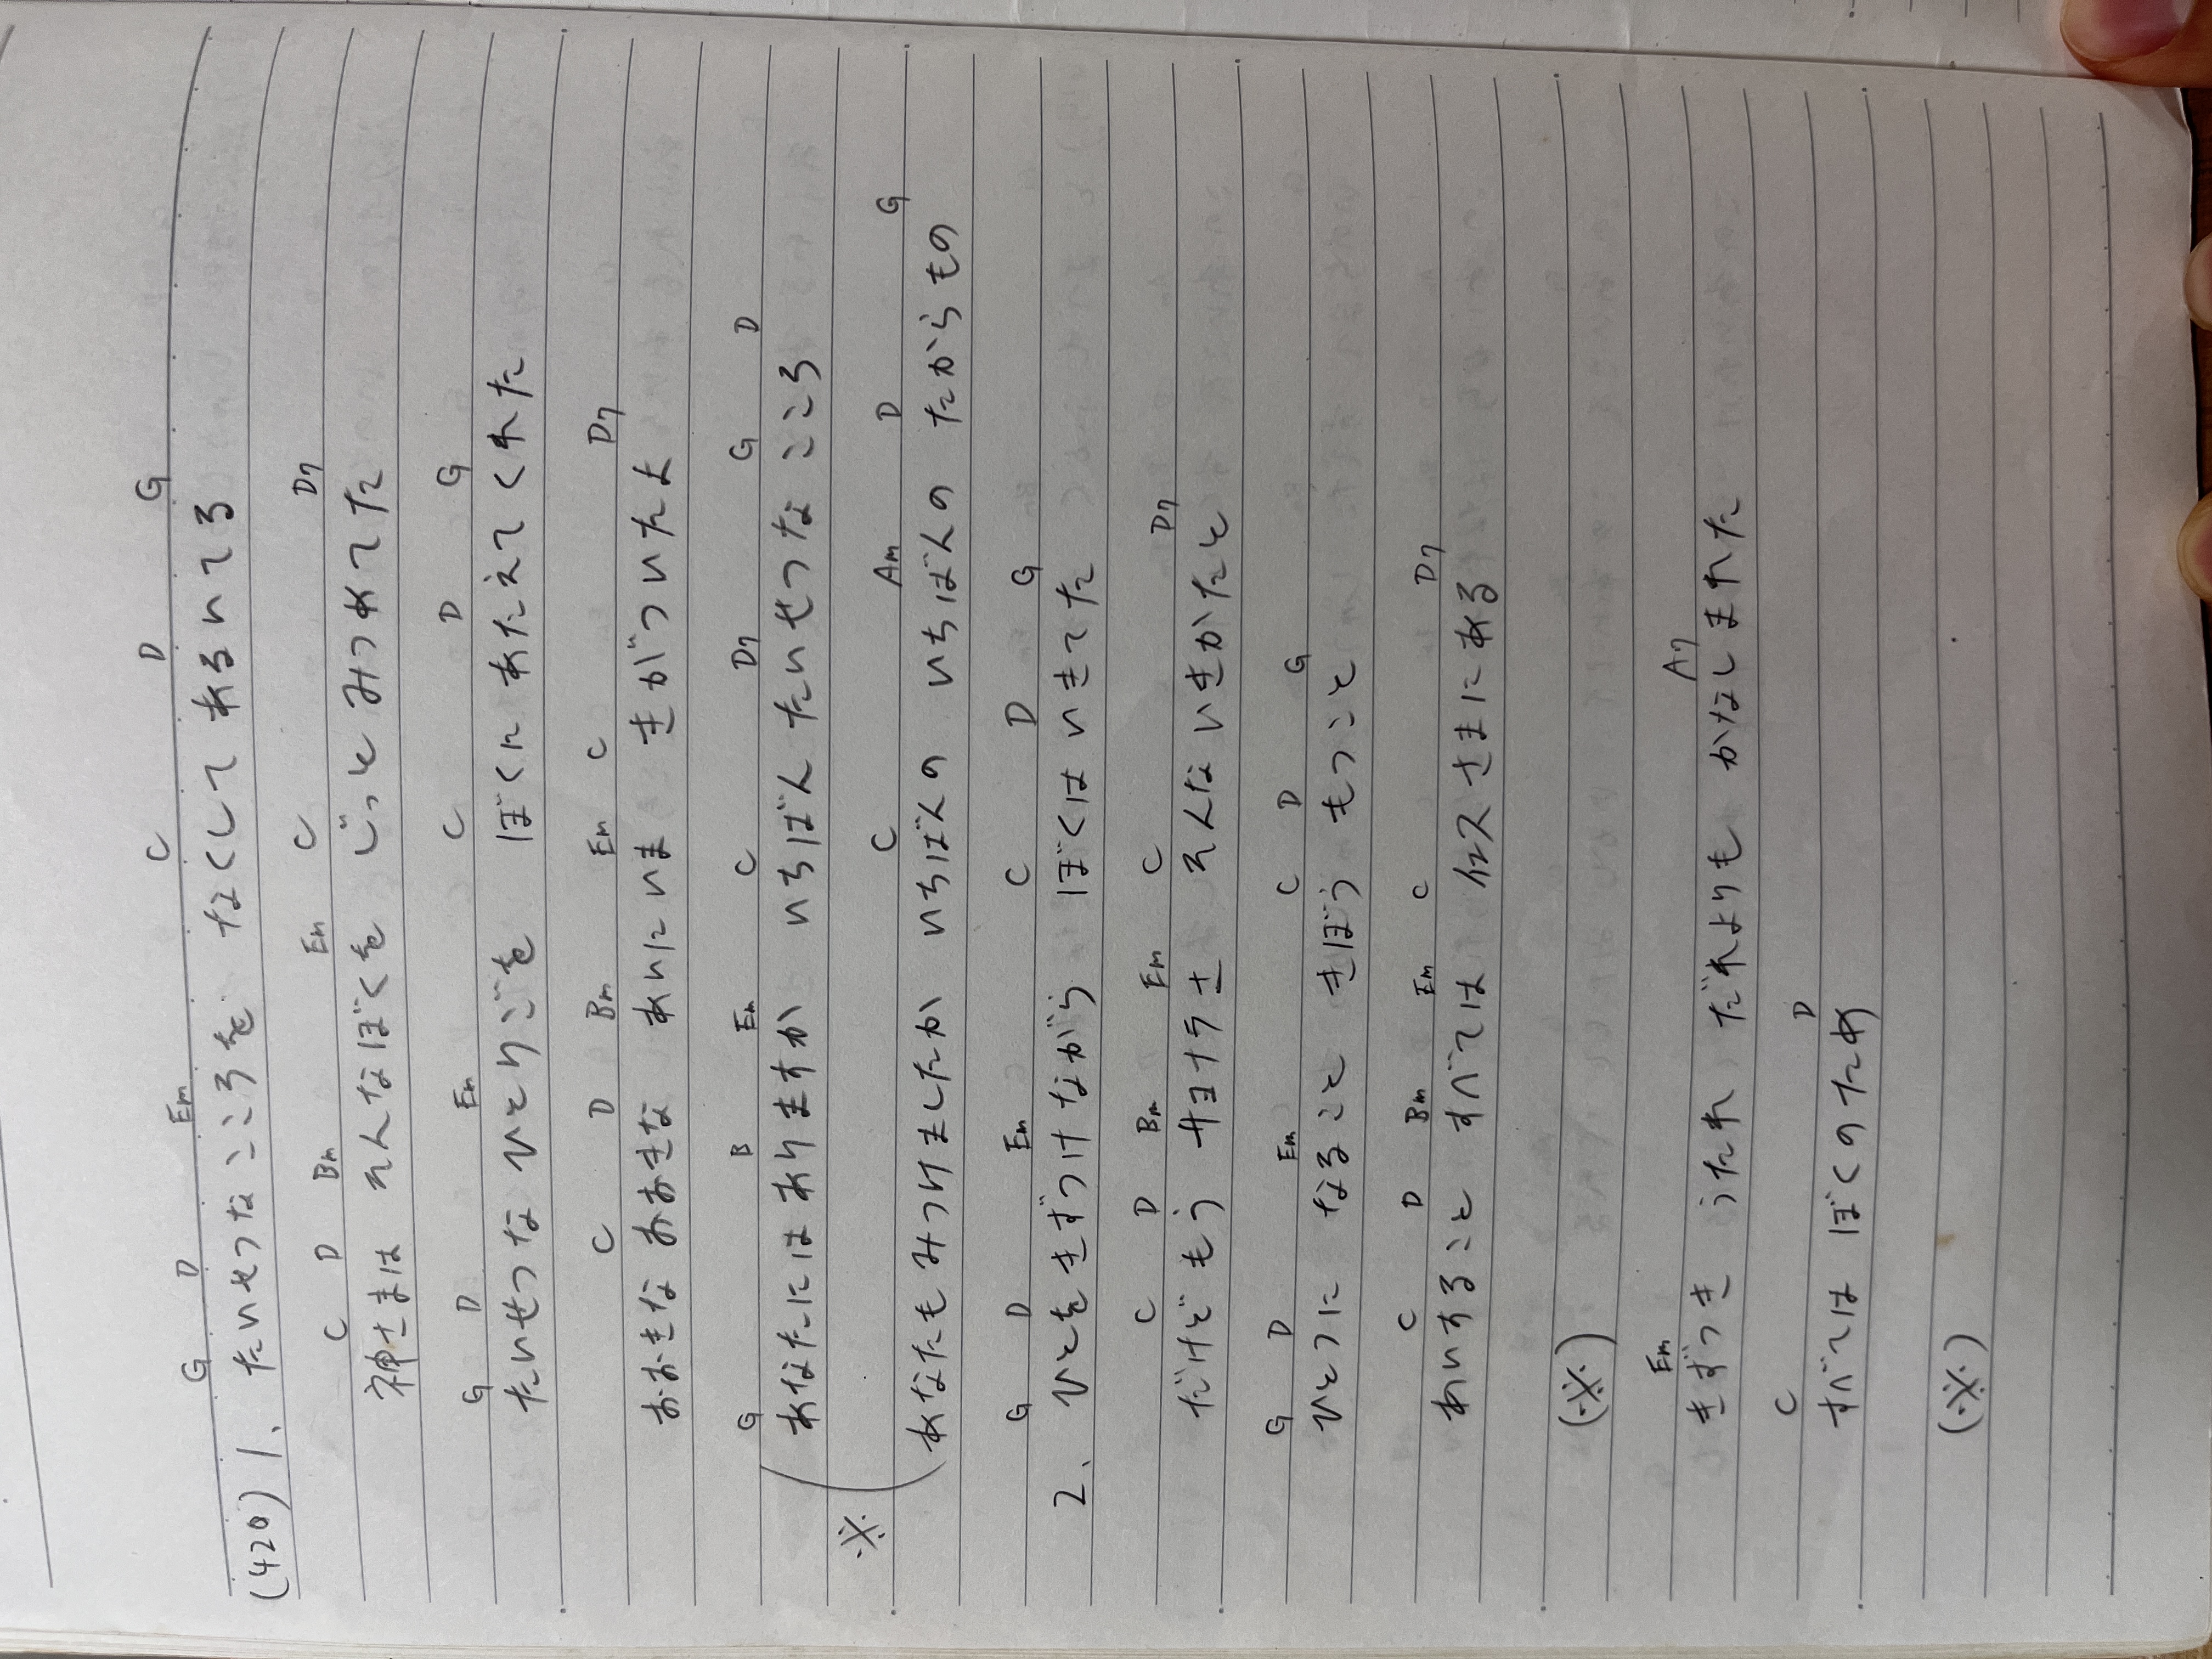 G D Em C D G
(420) 1、たいせつなこころを なくして あるいてる
C D Bm Em C D7
神さまは そんなぼくを じっと みつめてた
G D Em C D G
たいせつな ひとりごを ぼくに あたえてくれた
C D Bm Em C D7
おおきな おおきな あいにいま きがついたよ
G B Em C D7 G D
あなたには ありますか いちばん たいせつな こころ
※
C Am D G
あなたも みつけましたか いちばんの いちばんの たからもの
G D Em C D G
2、ひとを きずつけながら ぼくは いきてた
C D Bm Em C D7
だけど もう サヨナラさ そんな いきかたと
G D Em C D G
ひとつに なること きぼう もつこと
C D Bm Em C D7
あいすること すべては イエスさまにある
(※)
Em A7
きずつき うたれ だれよりも かなしまれた
C D
すべては ぼくのため
(※)